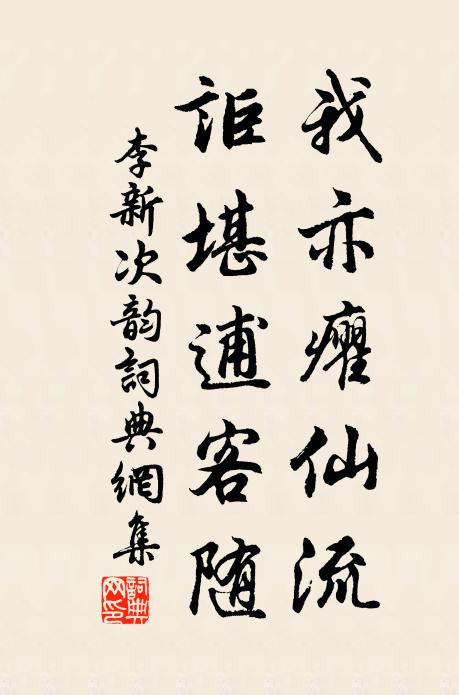 我亦癯仙流
詎堪逋客随
李新次韵詞典網集
詞典网印